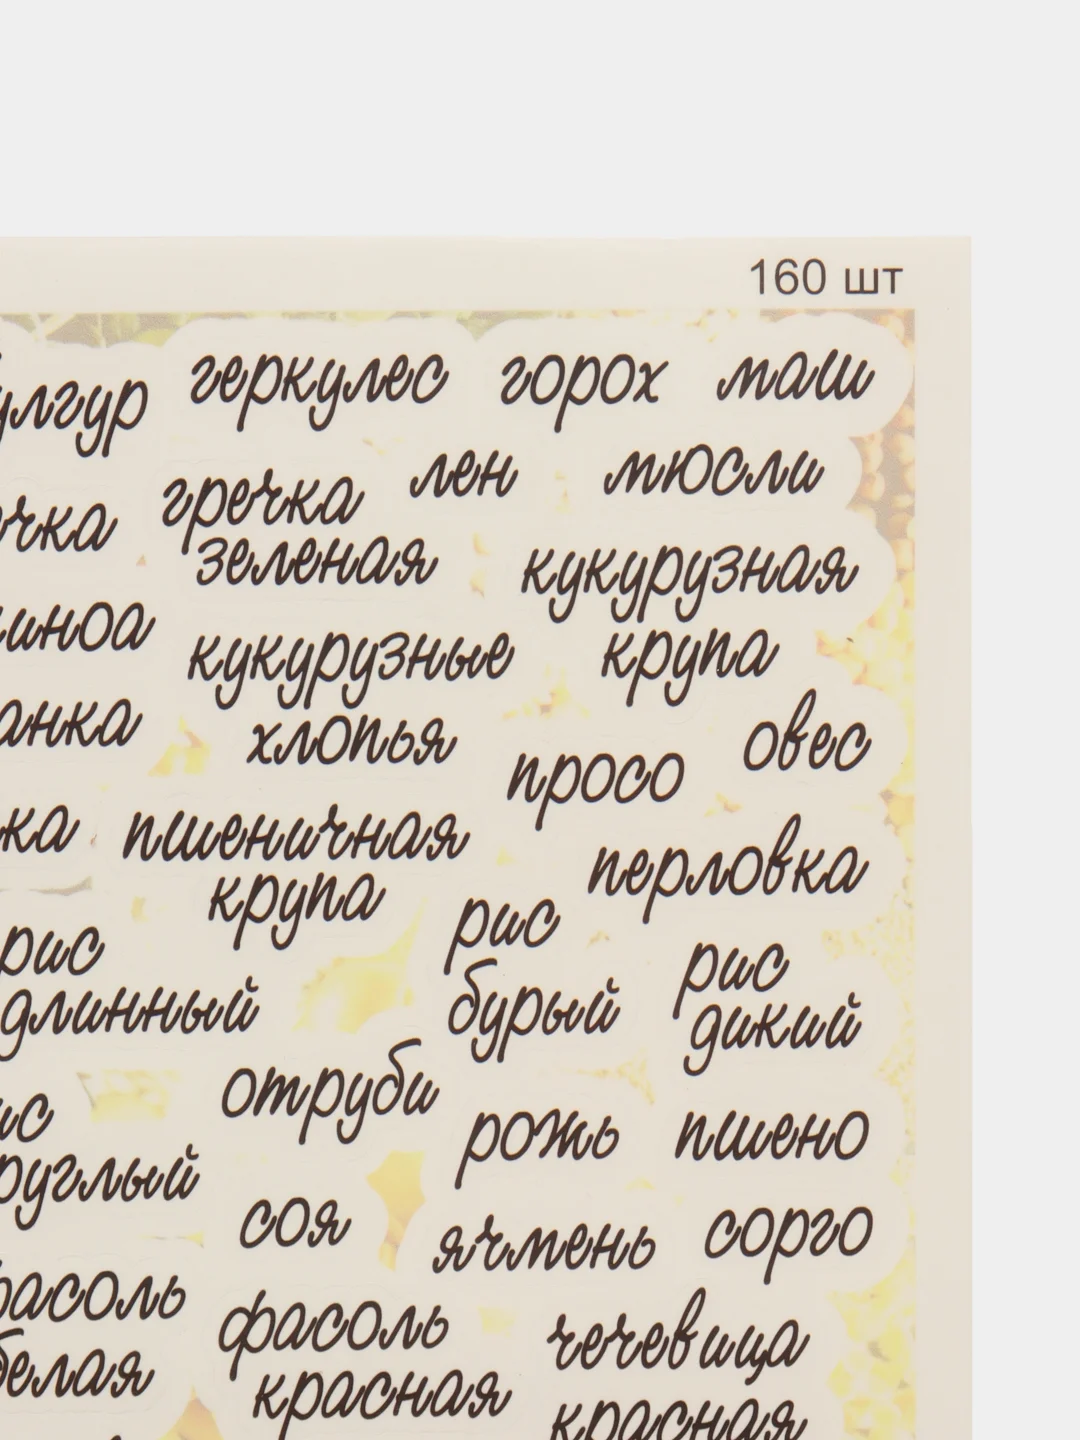 160 шт
геркулес
горох
маш
лен
мюсли
гречка
зеленая
кукурузная
крупа
кукурузные
хлопья
овес
просо
пшеничная
крупа
перловка
рис
длинный
рис
бурый
рис
дикий
отруби
рожь
пшено
соя
ячмень
сорго
фасоль
белая
фасоль
красная
чечевица
красная